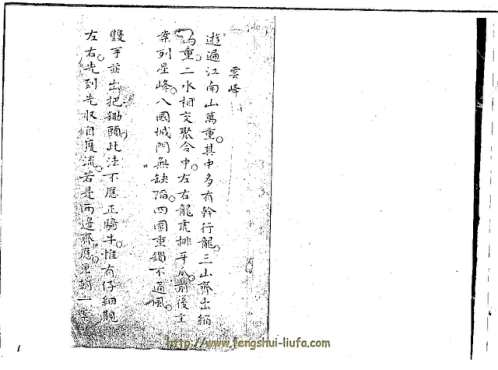 雲峰
遊遍江南山萬重。其中多有幹行龍。三山齊出
重。二水相交聚合中。左右龍虎排牙爪。前後主
案列星峰。八國城門無缺陷。四圍重鐲不通風
雙手並出把鋤頭。此法不應正騎牛。惟有仔細觀
左右先到先收自度流。若是両邊齊應
1
http://www.fengshui-liufa.com